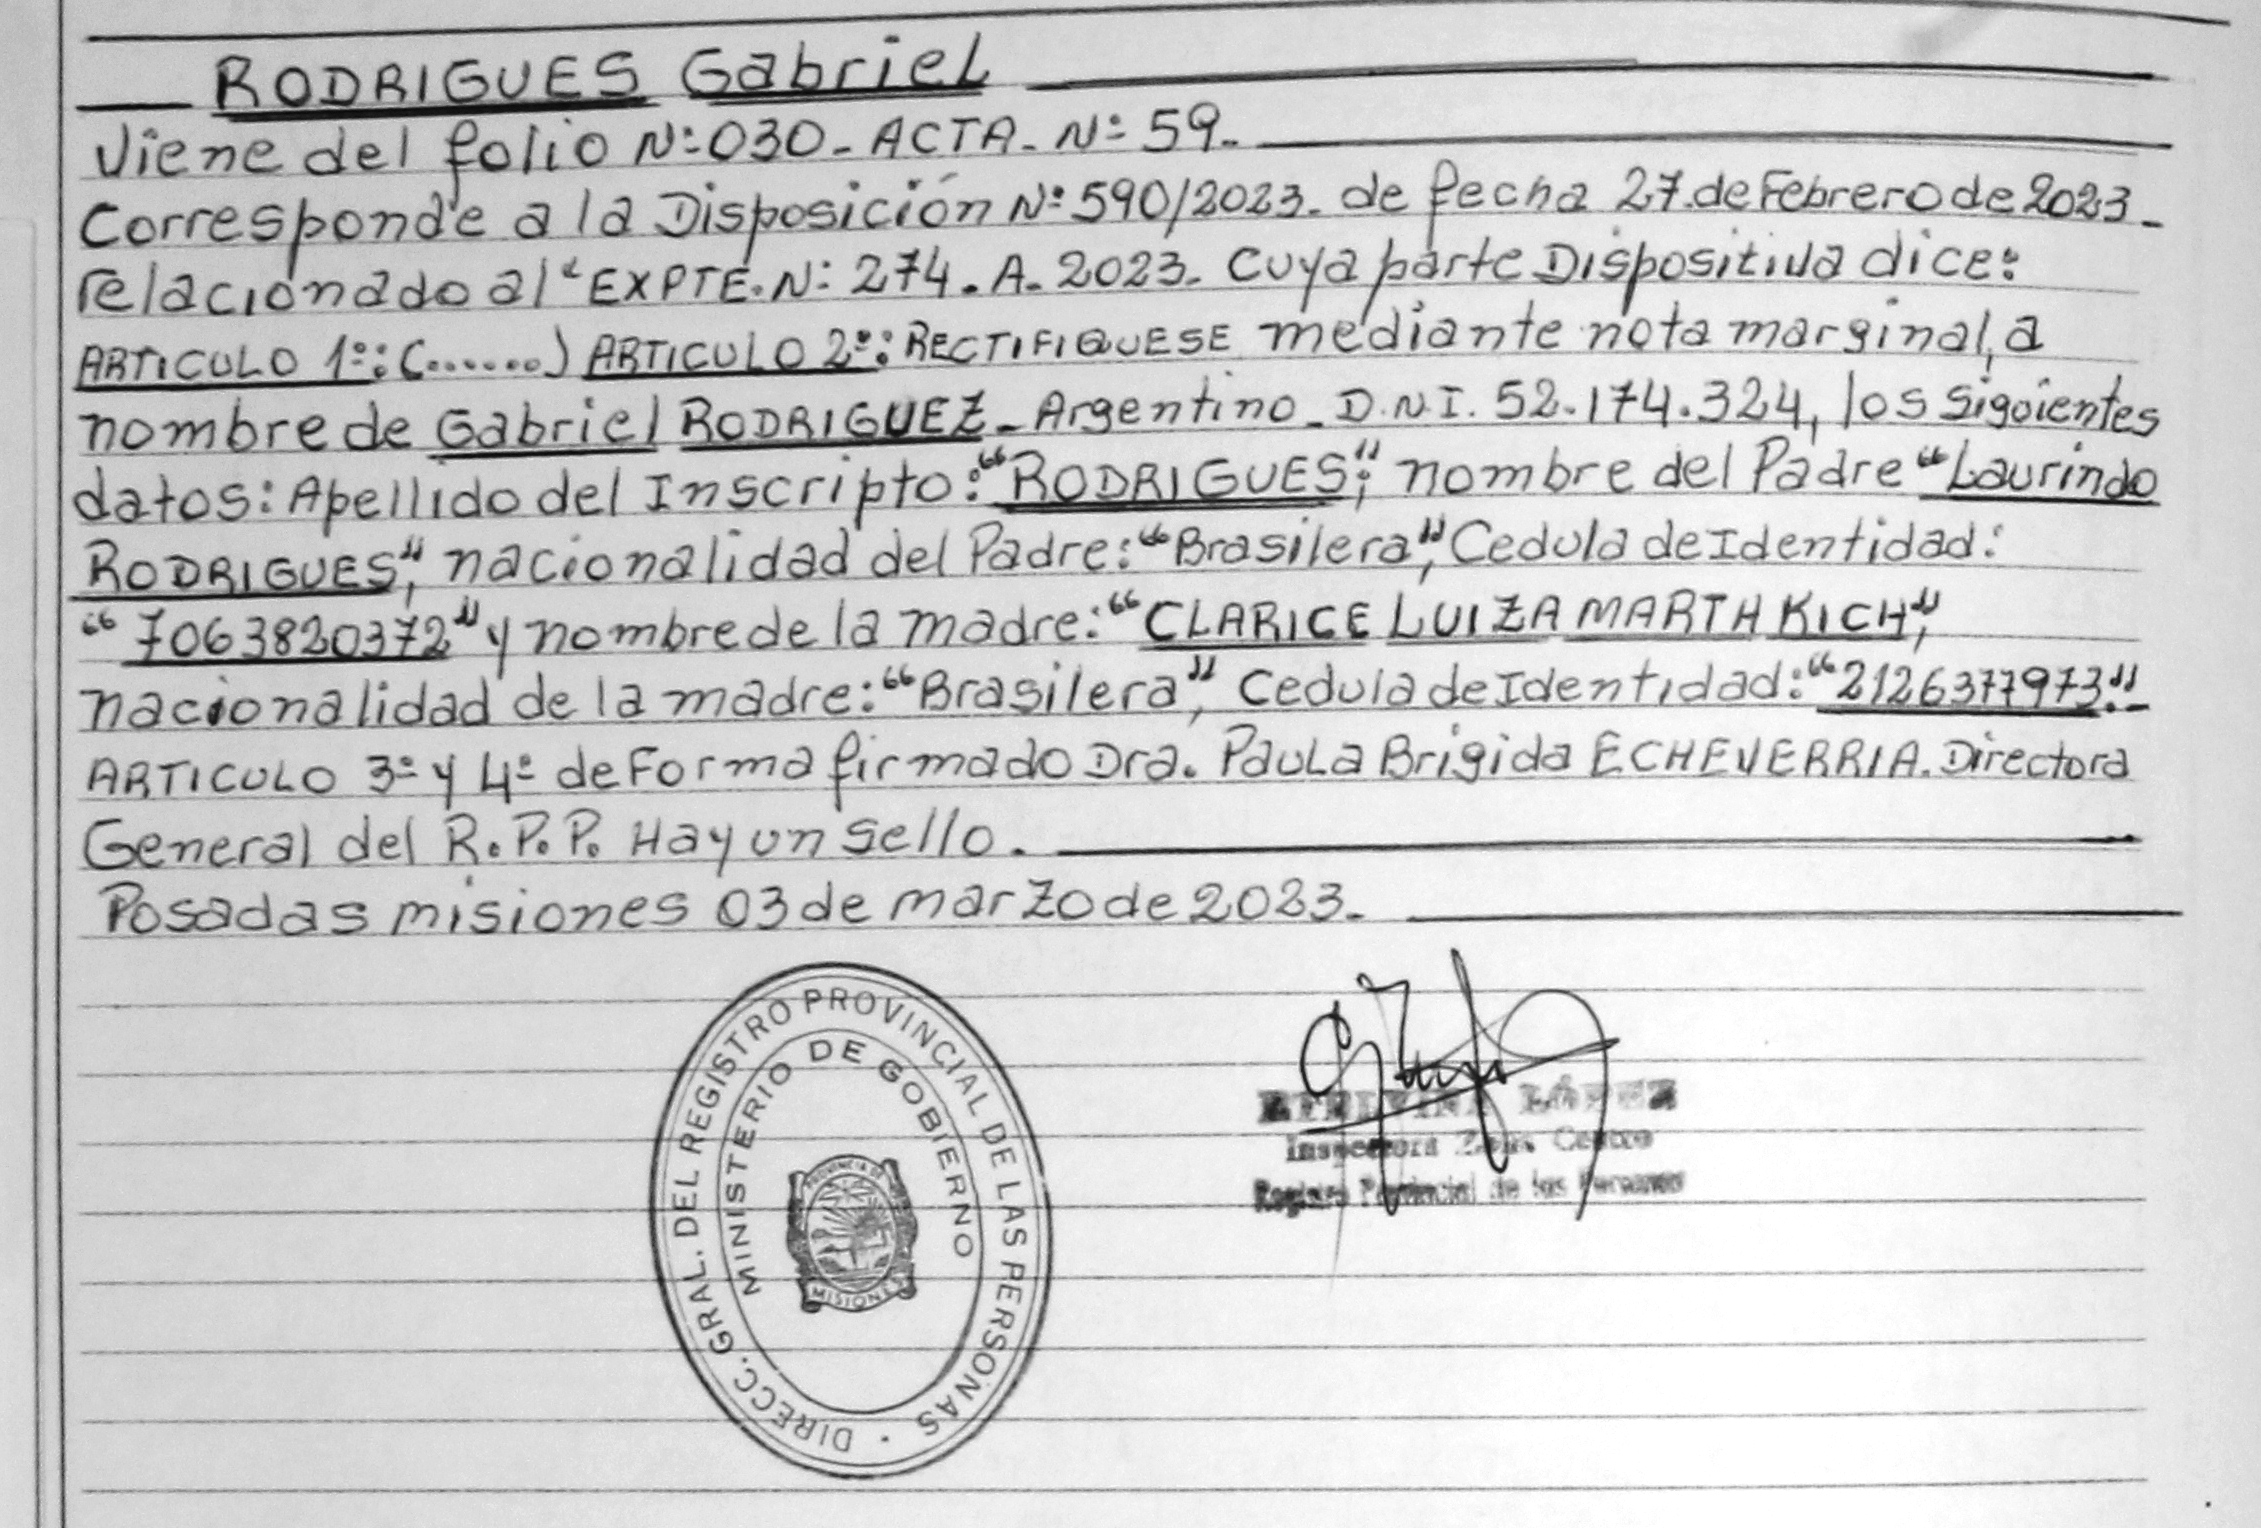 RODRIGUES Gabriel
Viene del folio Nº: 030_ ACTA_ Nº 59_
Corresponde a la Disposición Nº: 590/2023_ de fecha 27 de Febrero de 2023_
relacionado al "EXPTE. N: 274. A. 2023_ Cuya parte Dispositiva dice:
ARTICULO 1º: (.......) ARTICULO 2º: RECTIFIQUESE mediante nota marginal, a
nombre de Gabriel RODRIGUEZ_ Argentino_ D.N.I. 52.174.324, los Sigoientes
datos: Apellido del Inscripto: "RODRIGUES"; nombre del Padre "Laurindo
RODRIGUES", nacionalidad del Padre: "Brasilera", Cedula de Identidad:
"7063820372" y nombre de la madre: "CLARICE LUIZA MARTH KICH",
nacionalidad de la madre: "Brasilera", Cedula de Identidad: "2126377973."_
ARTICULO 3º y 4º de Forma firmado Dra. Paula Brigida ECHEVERRIA. Directora
General del R.P.P. Hay un Sello.
Posadas misiones 03 de marzo de 2023_
DIRECC. GRAL. DEL REGISTRO PROVINCIAL DE LAS PERSONAS
MINISTERIO DE GOBIERNO
PROVINCIA DE
MISIONES
LÓPEZ
Inspectora Zona Centro
Registro Provincial de las Personas